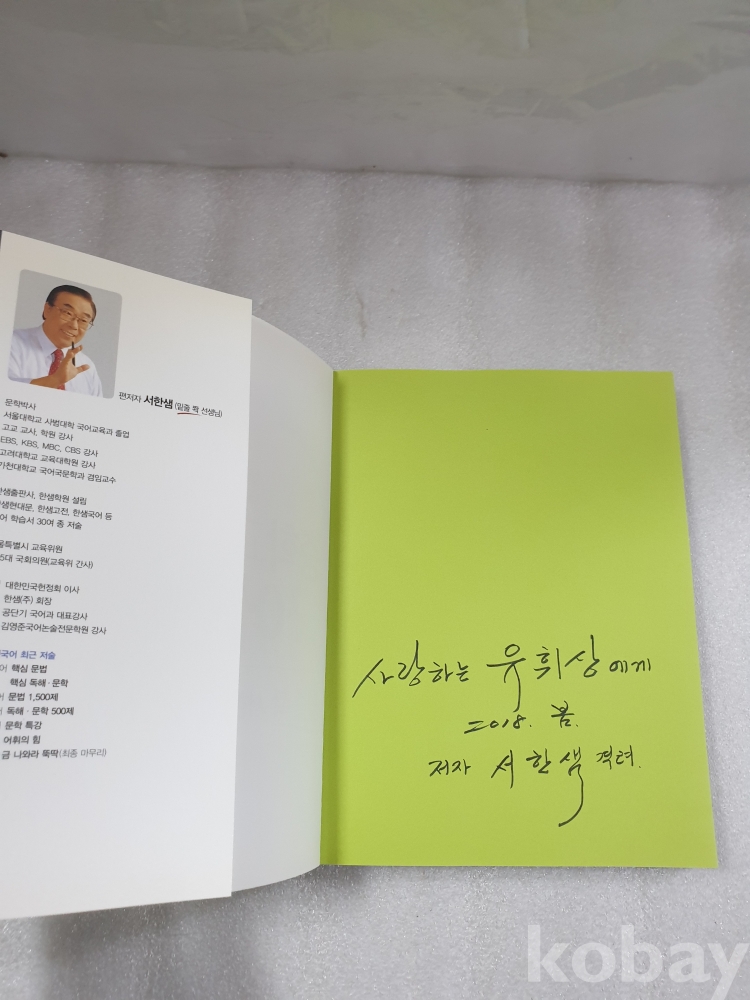 편저자 서한샘(밑줄 쫙 선생님)
문학박사
서울대학교 사범대학 국어교육과 졸업
고교 교사, 학원 강사
EBS, KBS, MBC, CBS 강사
고려대학교 교육대학원 강사
가천대학교 국어국문학과 겸임교수
한샘출판사, 한샘학원 설립
한샘현대문, 한샘고전, 한샘국어 등
어 학습서 30여 종 저술
울특별시 교육위원
5대 국회의원(교육위 간사)
대한민국헌정회 이사
한샘(주) 회장
공단기 국어과 대표강사
김영준국어논술전문학원 강사
국어 최근 저술
어 핵심 문법
핵심 독해·문학
어 문법 1,500제
독해·문학 500제
문학 특강
어휘의 힘
금 나와라 뚝딱(최종 마무리)
사랑하는 유휘상에게
2018. 봄.
저자 서한샘 격려.
kobay